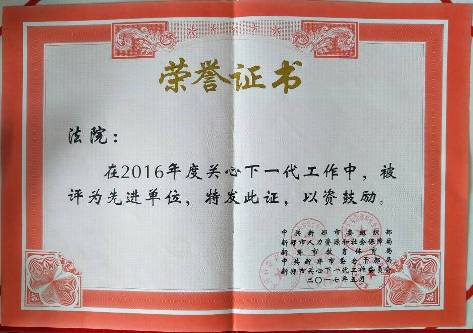 荣誉证书
法院：
在2016年度关心下一代工作中，被
评为先进单位，特发此证，以资鼓励。
中共新郑市委组织部
新郑市人力资源和社会保障局
新郑市教育体育局
新郑市关心下一代工作委员会
二〇一七年五月